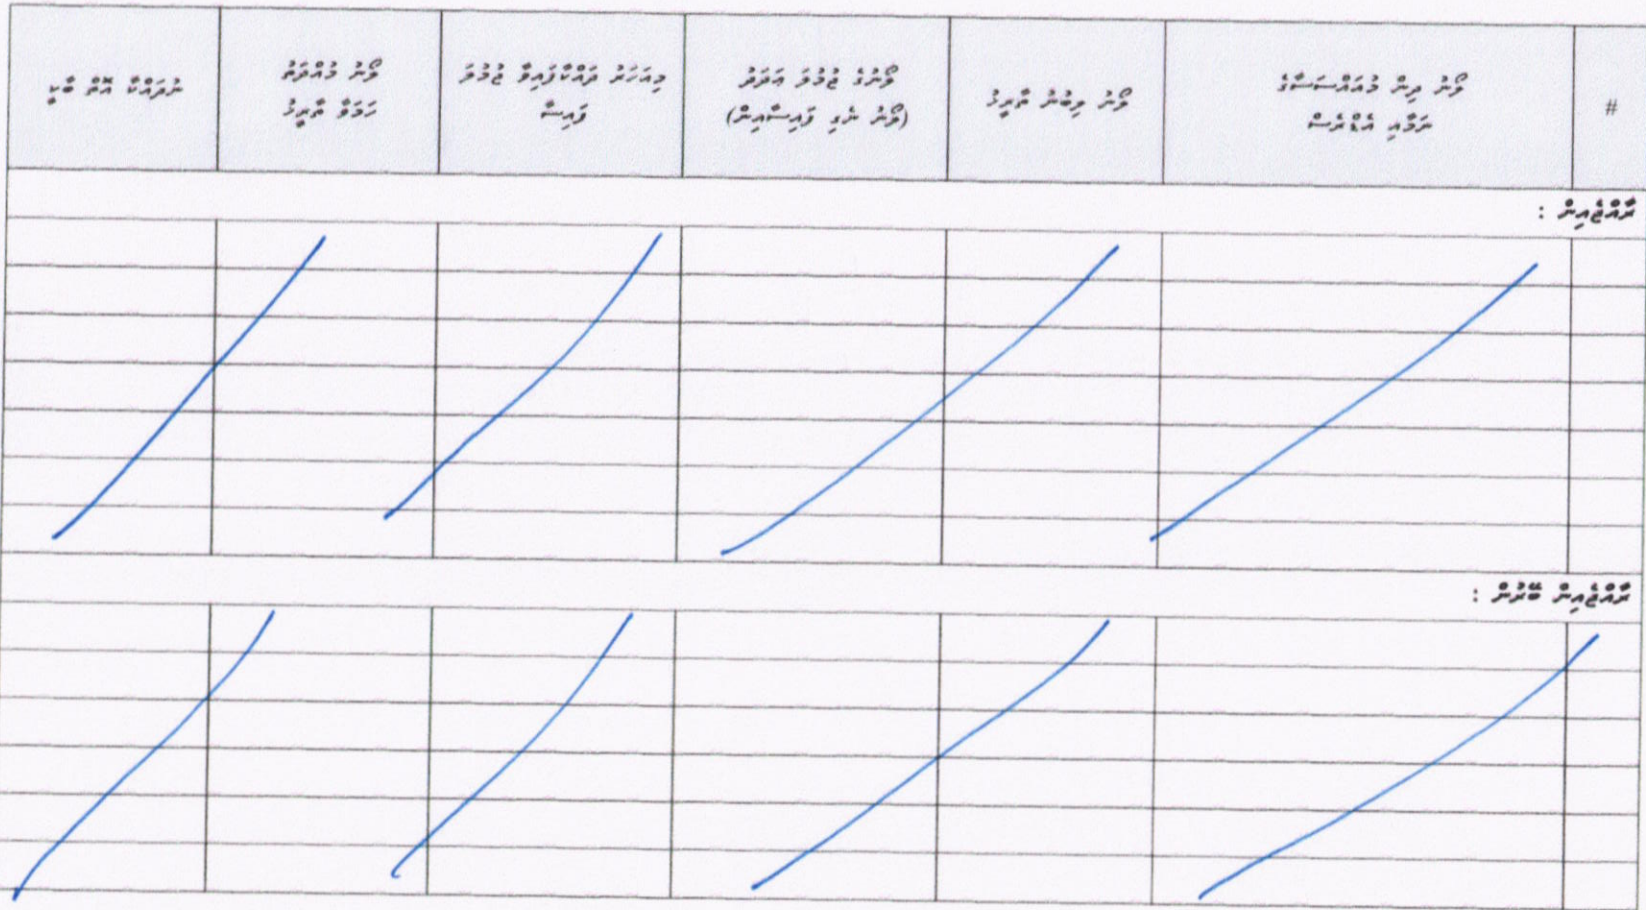 #
ލޯނު ދިން މުއައްސަސާގެ
ނަމާއި އެޑްރެސް
ލޯނު ލިބުނު ތާރީޚު
ލޯނުގެ ޖުމުލަ އަދަދު
(ލޯނު ނެގި ފައިސާއިން)
މިއަހަރު ދައްކާފައިވާ ޖުމުލަ
ފައިސާ
ލޯނު މުއްދަތު
ހަމަވާ ތާރީޚު
ނުދައްކާ އޮތް ބާކީ
ރާއްޖެއިން :
ރާއްޖެއިން ބޭރުން :